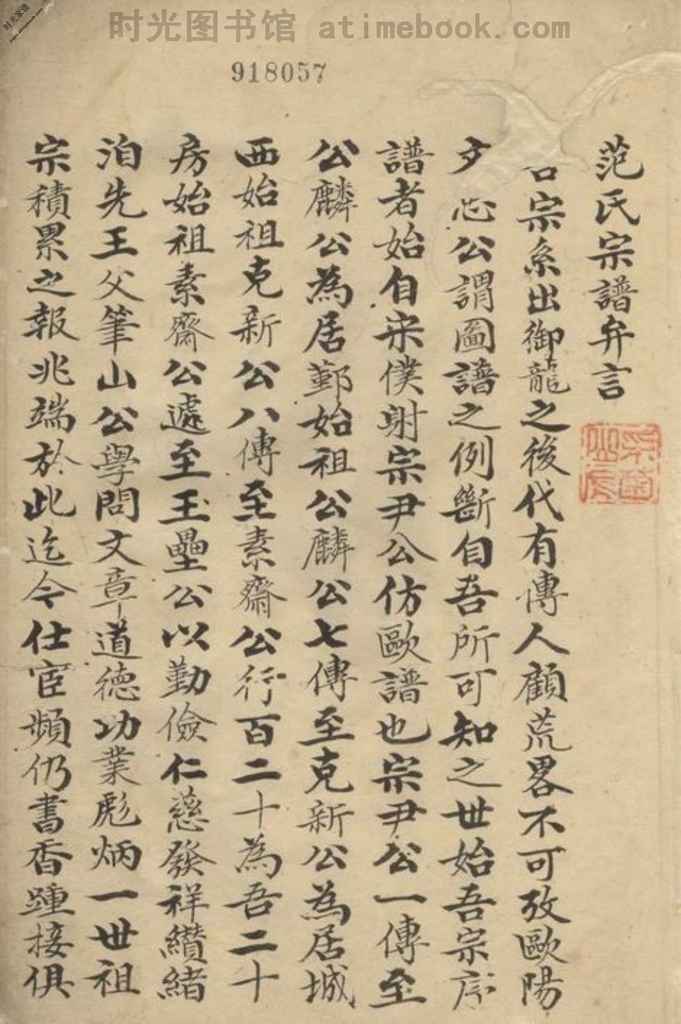 时光图书馆 atimebook.com
918057
范氏宗譜弁言
吾宗系出御龍之後代有傳人顧荒畧不可攷歐陽
文忠公謂圖譜之例斷自吾所可知之世始吾宗序
譜者始自宋僕射宗尹公仿歐譜也宗尹公一傳至
公麟公為居鄞始祖公麟公七傳至克新公為居城
西始祖克新公八傳至素齋公行百二十為吾二十
房始祖素齋公遞至玉壘公以勤儉仁慈發祥纘緒
洎先王父筆山公學問文章道德功業彪炳一世祖
宗積累之報兆端於此迄今仕宦頻仍書香踵接俱